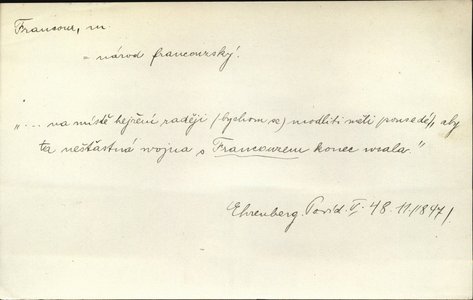 Francouz, m
= národ francouzský.
„... na místě hejření raději (bychom se) modliti měli ponsedě, aby
ta nešťastná wojna s Francouzem konec wzala."
Ehrenberg. Povíd. V. 48. 11 (1847)